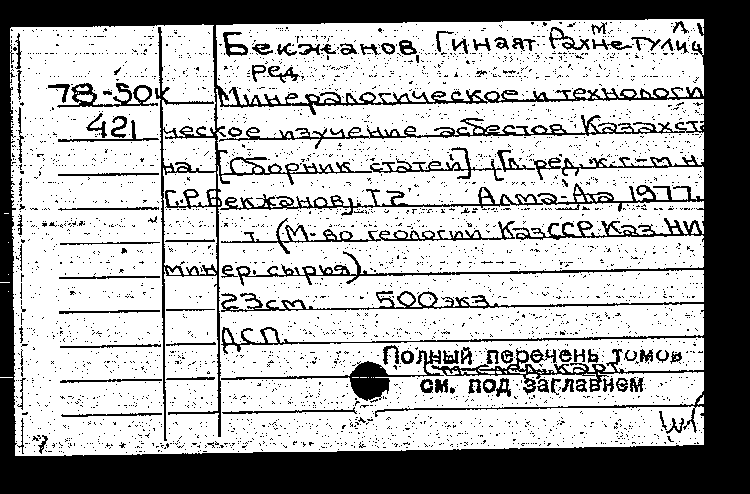 Бекжанов, Гинаят
ред.
78-50к Минералогическое и технологи
421 ческое изучение асбестов Казахста
на. [Сборник статей]. [Гл. ред. к.г.-м.н.
Г.Р. Бекжанов]. Т.2 Алма-Ата, 1977.
т. (М-во геологии КазССР. Каз. НИИ
минер. сырья).
23см. 500экз.
ДСП.
Полный перечень томов
см. след. карт.
см. под заглавием